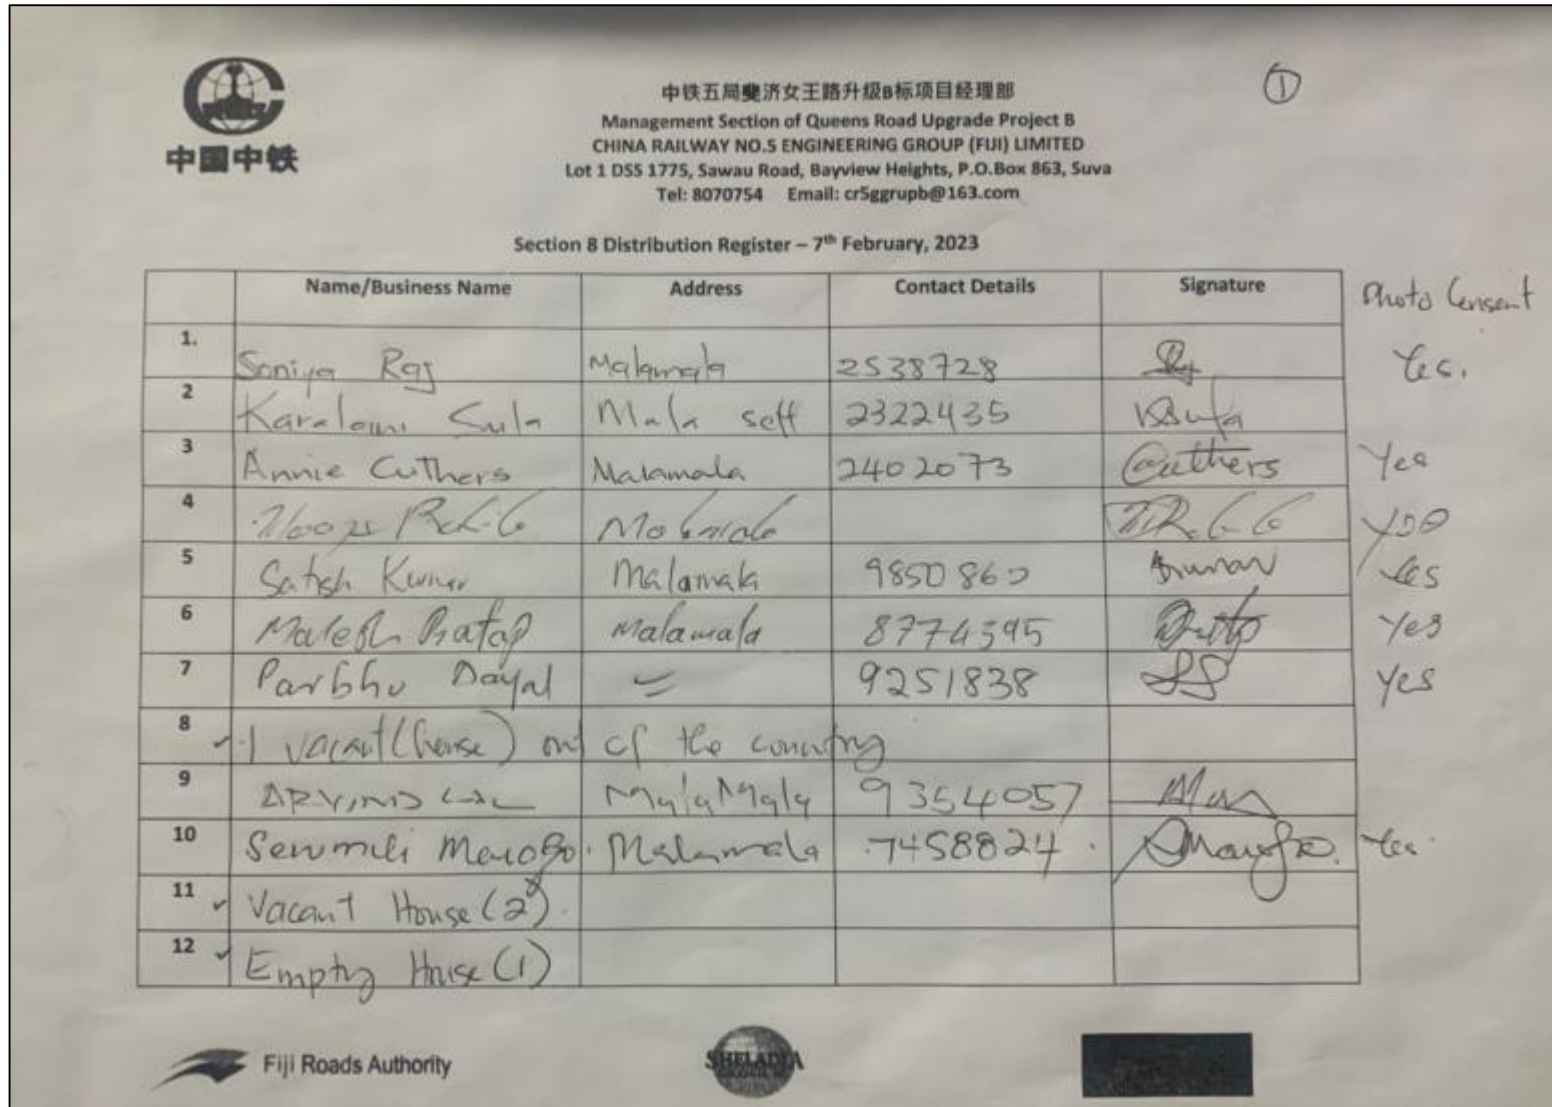 ①
中铁五局斐济女王路升级B标项目经理部
Management Section of Queens Road Upgrade Project B
CHINA RAILWAY NO.5 ENGINEERING GROUP (FIJI) LIMITED
Lot 1 DSS 1775, Sawau Road, Bayview Heights, P.O.Box 863, Suva
Tel: 8070754 Email: cr5ggrupb@163.com
中国中铁
Section 8 Distribution Register – 7th February, 2023
Name/Business Name Address Contact Details Signature Photo Consent
1. Soniya Raj Malamala 2538728 Yes.
2 Sula Mala sett 2322435
3 Annie Cuthers Malamala 2402073 Cuthers Yes
4
5 Satish Kumar Malamala 9850860 Kumar Yes
6 Pratap Malamala 8774395 Yes
7 Parbhu Dayal 9251838 Yes
8 1 vacant (house) out of the country
9 ARVIND LAL MalaMala 9354057
10 Malamala 7458824 Yes
11 Vacant House (2)
12 Empty House (1)
Fiji Roads Authority
SHELADIA